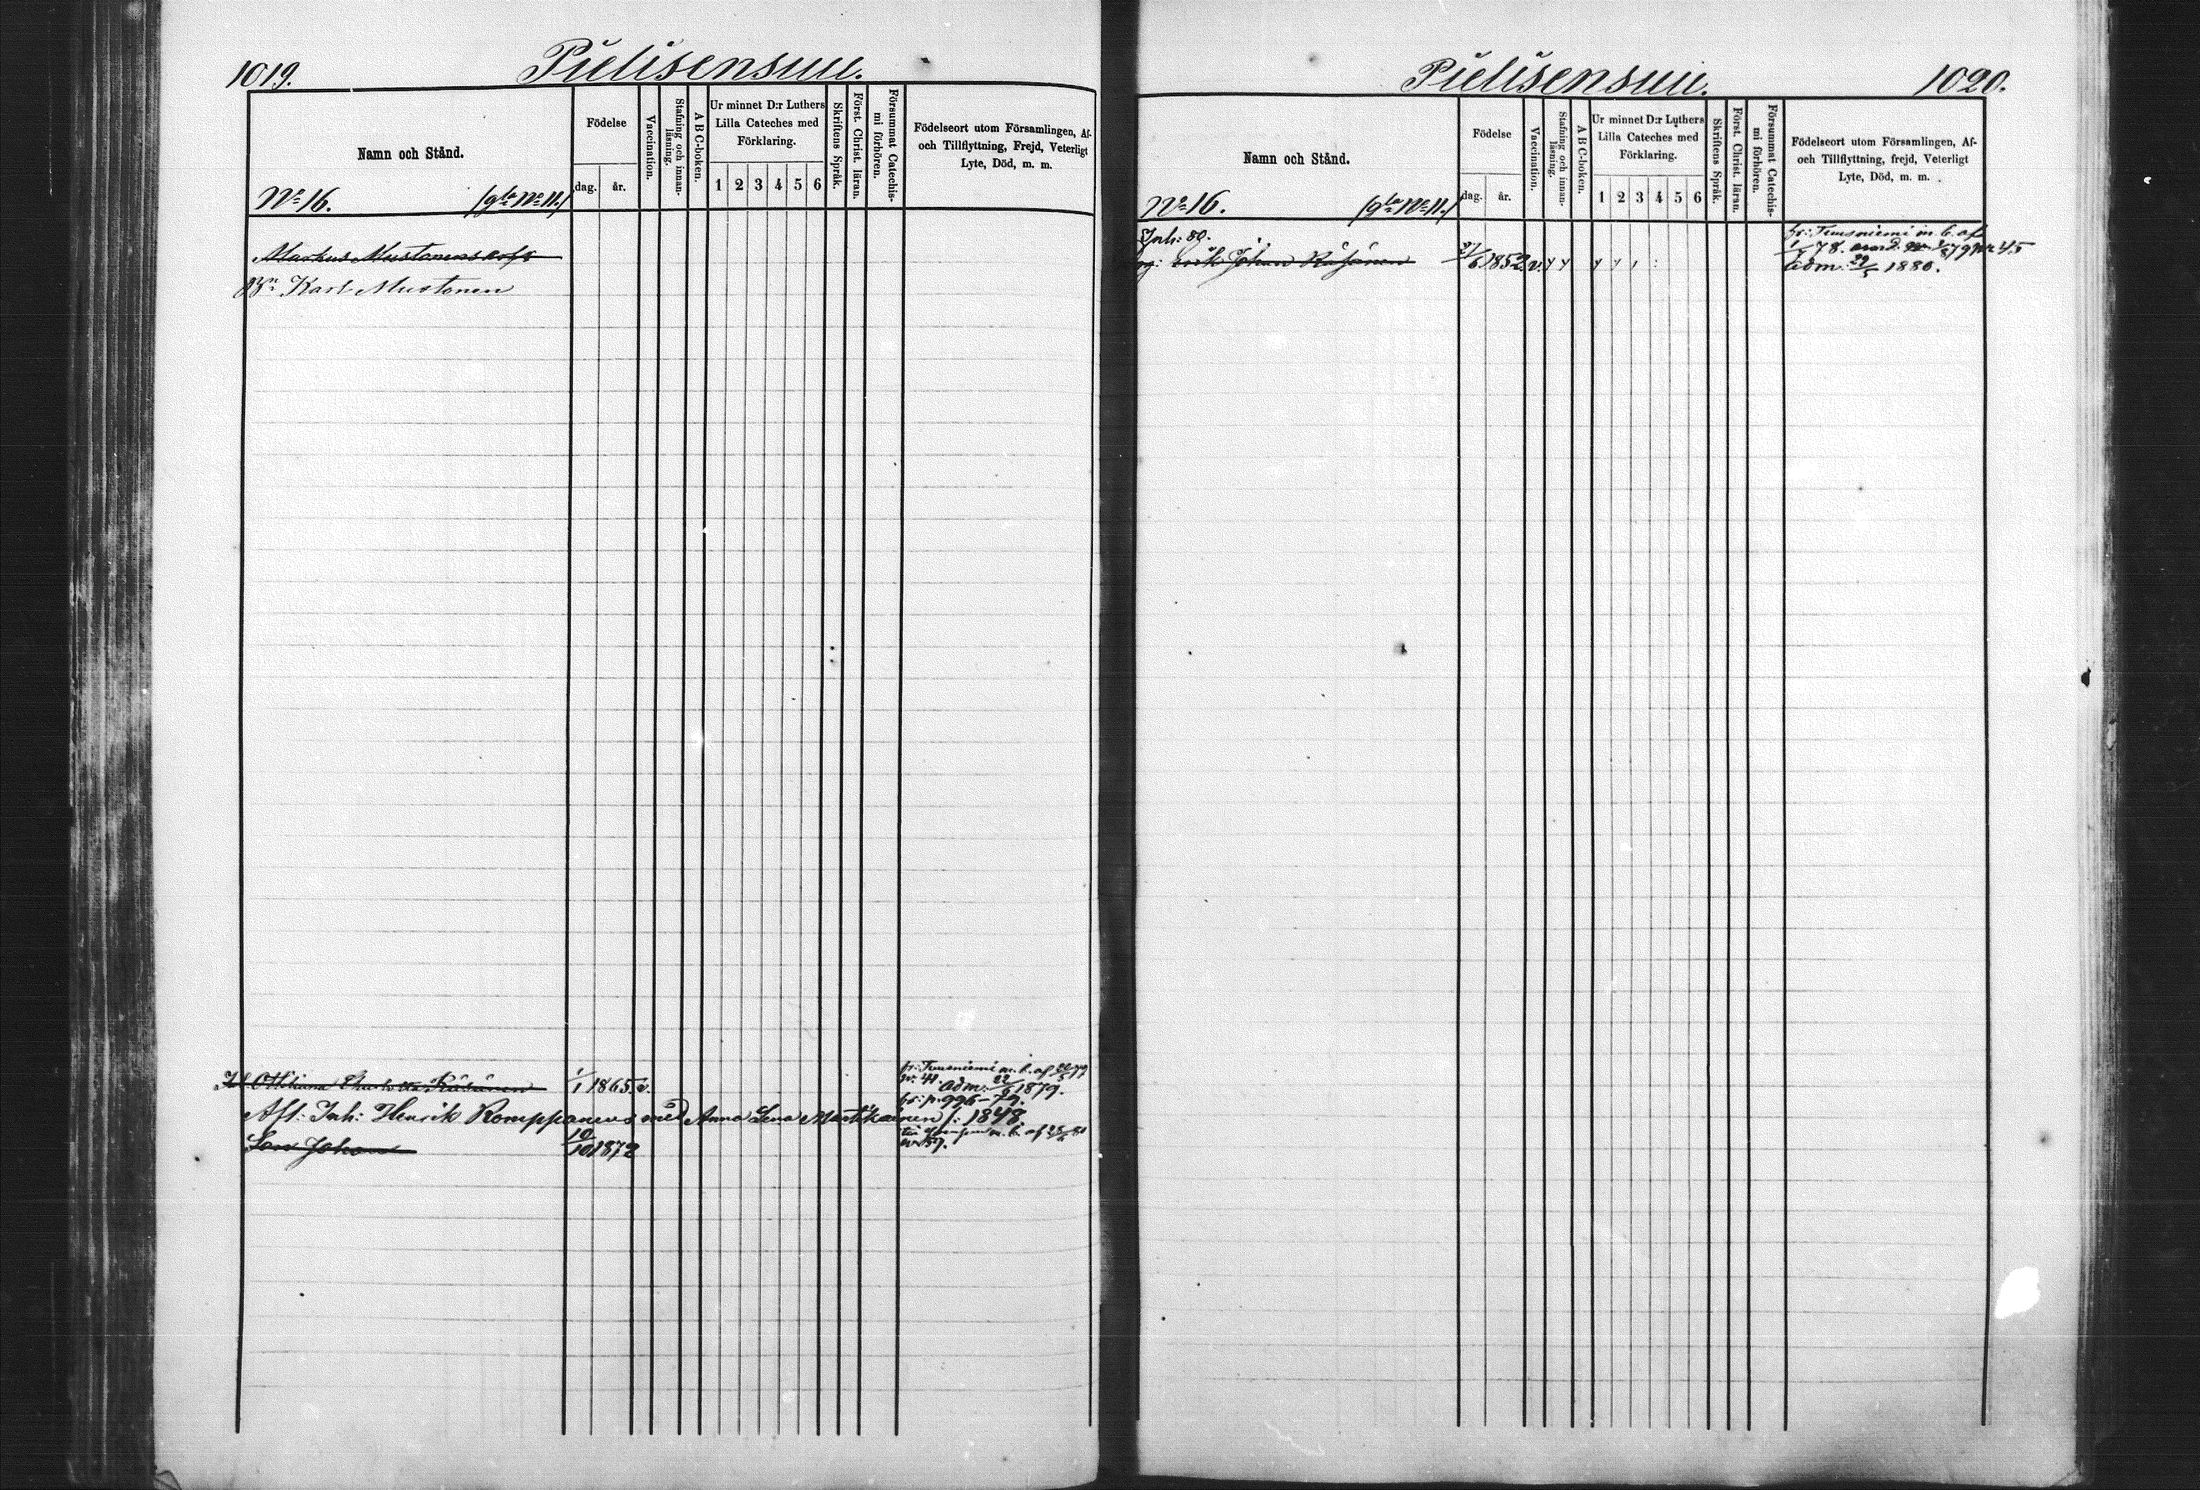 1019.
Pielisensuu.
Namn och Stånd.
Födelse
dag.
år.
Vaccination.
Stafning och innan-
läsning.
ABC-boken.
Ur minnet D:r Luthers
Lilla Cateches med
Förklaring.
1 2 3 4 5 6
Skriftens Språk.
Först. Christ. läran.
Försummat Catechis-
mi förhören.
Födelseort utom Församlingen, Af-
och Tillflyttning, Frejd, Veterligt
Lyte, Död, m. m.
No 16.
(gla No 11.)
Markus Mustonens
Karl Mustonen
fr: Tuusniemi m. b. af
Ottiliana Charlotta Räsänen
1/1 1865. v.
adm. 22/6 1879.
fr: p. 996-79.
Afl: Inh: Henrik Romppanens med Anna Lena Martikainen f: 1848
Son Johan
10/10 1872
m. b. af
1020.
Pielisensuu.
Namn och Stånd.
Födelse
dag.
år.
Vaccination.
Stafning och innan-
läsning.
ABC-boken.
Ur minnet D:r Luthers
Lilla Cateches med
Förklaring.
1 2 3 4 5 6
Skriftens Språk.
Först. Christ. läran.
Försummat Catechis-
mi förhören.
Födelseort utom Församlingen, Af-
och Tillflyttning, frejd, Veterligt
Lyte, Död, m. m.
No 16.
(gla No 11.)
Inh: 80.
fr: Tuusniemi m. b. af
Johan Räsänen
1852. v.
78.
adm. 1880.